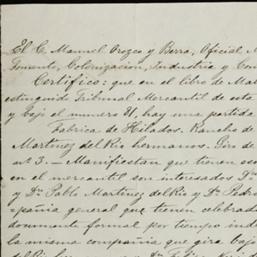 El C. Manuel Orozco y Berra, Oficial M
Fomento, Colonizacion, Industria y Com
Certifico: que en el libro de Ma
extinguido Tribunal Mercantil de esta
y bajo el numero 21, hay una partida
Fabrica de Hilados. Rancho de
Martinez del Rio hermanos. Giro de
al 3. — Manifiestan que tienen es
en el mercantil son interesados Dn
y Dn Pablo Martinez del Rio y Dn Pedro
pañia general que tienen celebrad
documento formal por tiempo inde
la misma compañia que gira bajo